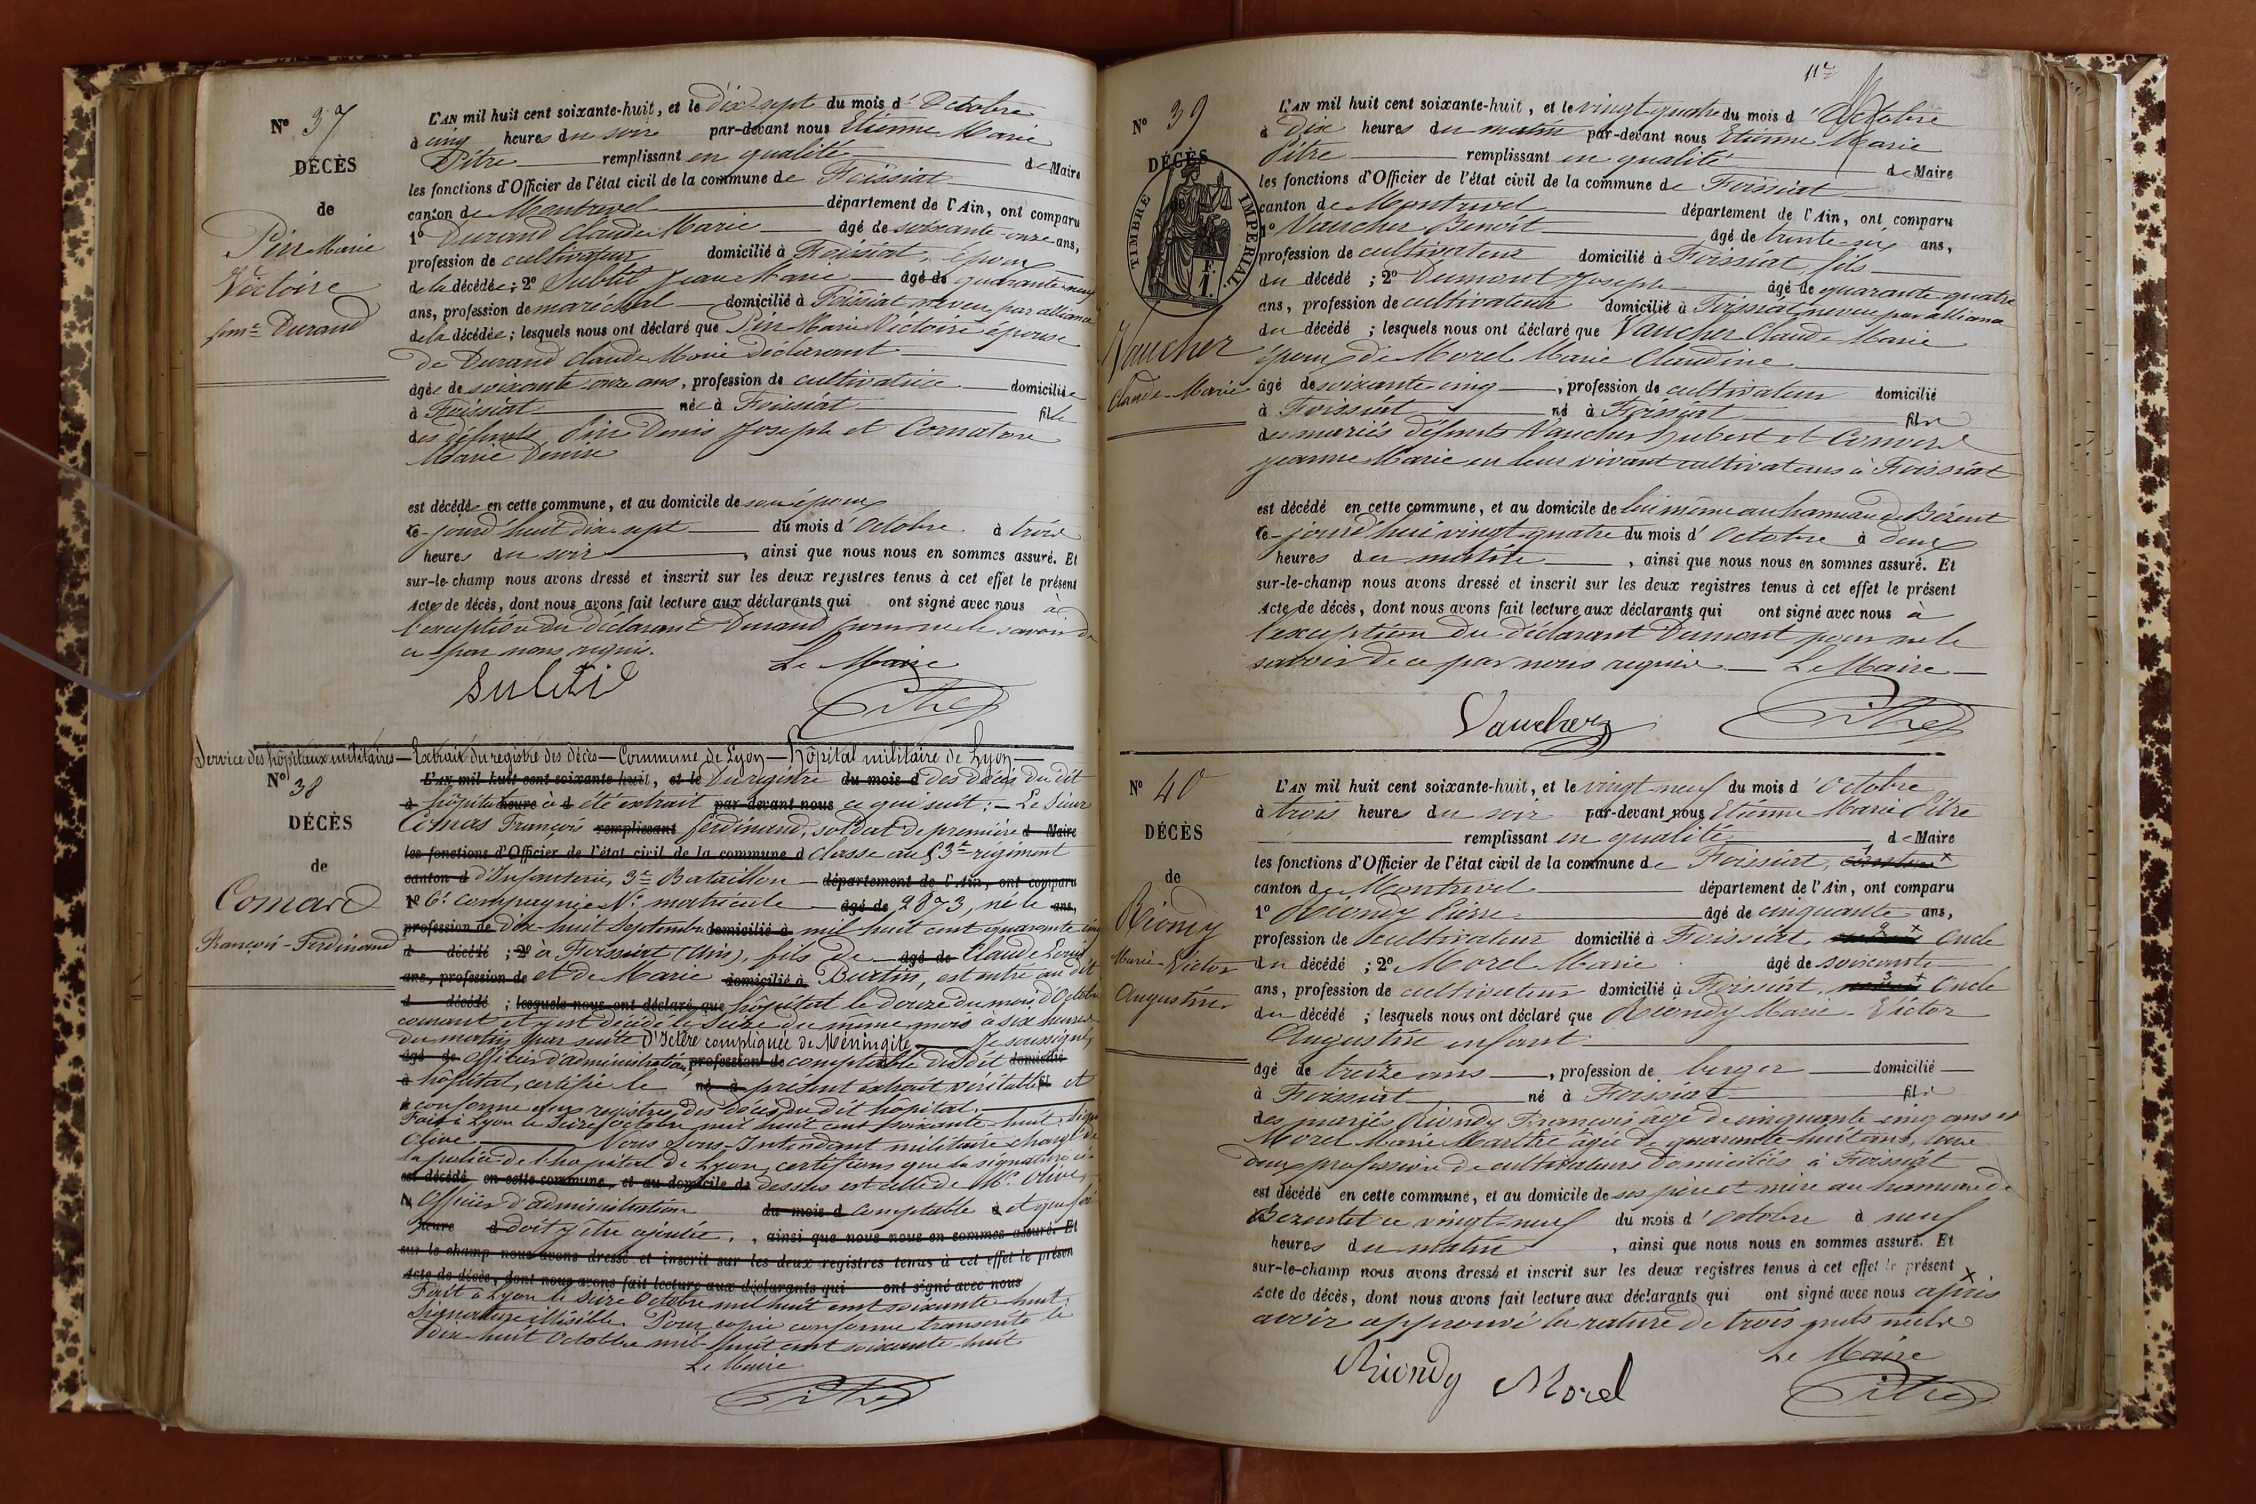 N° 37
DÉCÈS
de
Pin Marie
Victoire
fme Durand
L'AN mil huit cent soixante-huit, et le dix-sept du mois d'Octobre
à cinq heures du soir par-devant nous Etienne Marie
Pitre remplissant en qualité de Maire
les fonctions d'Officier de l'état civil de la commune de Foissiat
canton de Montrevel département de l'Ain, ont comparu
1° Durand Claude Marie âgé de soixante-onze ans,
profession de cultivateur domicilié à Foissiat, époux
de la décédée; 2° Subtil Jean Marie âgé de quarante-neuf
ans, profession de maréchal domicilié à Foissiat neveu par alliance
de la décédée; lesquels nous ont déclaré que Pin Marie Victoire épouse
de Durand Claude Marie déclarant
âgée de soixante-onze ans, profession de cultivatrice domiciliée
à Foissiat née à Foissiat fille
des défunts Pin Denis Joseph et Cornaton
Marie Denise
est décédée en cette commune, et au domicile de son époux
ce-jourd'hui dix-sept du mois d'Octobre à trois
heures du soir, ainsi que nous nous en sommes assuré. Et
sur-le-champ nous avons dressé et inscrit sur les deux registres tenus à cet effet le présent
Acte de décès, dont nous avons fait lecture aux déclarants qui ont signé avec nous à
l'exception du déclarant Durand pour ne le savoir de
ce par nous requis.
Le Maire
Subtil
Pitre
Service des hôpitaux militaires — Extrait du registre des décès — Commune de Lyon — Hôpital militaire de Lyon —
N° 38
DÉCÈS
de
Comard
François-Ferdinand
L'AN mil huit cent soixante-huit, et le Du registre du mois d des décès du dit
à hôpital heure à d été extrait par-devant nous ce qui suit: — Le Sieur
Comas François remplissant ferdinand, soldat de première d Maire
les fonctions d'Officier de l'état civil de la commune d classe au 53e régiment
canton d d'Infanterie, 3e Bataillon département de l'Ain, ont comparu
1° 6e compagnie N° matricule âgé de 2873, né le ans,
profession de dix-huit Septembre domicilié à mil huit cent quarante cinq
d décédé; 2° à Foissiat (Ain), fils de âgé de Claude Louis
ans, profession de et de Marie domicilié à Burtin, est entré au dit
d décédé; lesquels nous ont déclaré que hôpital le douze du mois d'Octobre
courant et y est décédé le Seize du même mois à six heures
du matin par suite D'Ictère compliquée de Méningite — Je soussigné,
âgé de officier d'administration, profession de comptable du dit domicilié
à hôpital, certifie le né à présent extrait véritable fil et
conforme aux registres des décès du dit hôpital.
Fait à Lyon le Seize octobre mil huit cent soixante-huit. Signé
Olive — Nous Sous-Intendant militaire chargé de
la police de l'hôpital de Lyon, certifions que la signature ci-
est décédé en cette commune, et au domicile de dessus est celle de Mr. Olive,
Officier d'administration du mois d comptable à et que foi
heure d doit y être ajoutée, ainsi que nous nous en sommes assuré. Et
sur-le-champ nous avons dressé et inscrit sur les deux registres tenus à cet effet le présent
Acte de décès, dont nous avons fait lecture aux déclarants qui ont signé avec nous
Fait à Lyon le seize octobre mil huit cent soixante-huit.
Signature illisible. Pour copie conforme transcrite le
dix-huit Octobre mil huit cent soixante-huit
Le Maire
Pitre
N° 39
DÉCÈS
de
TIMBRE IMPÉRIAL
F.
1.
Vaucher
Claude-Marie
L'AN mil huit cent soixante-huit, et le vingt-quatre du mois d'Octobre
à Dix heures du matin par-devant nous Etienne Marie
Pitre remplissant en qualité de Maire
les fonctions d'Officier de l'état civil de la commune de Foissiat
canton de Montrevel département de l'Ain, ont comparu
1° Vaucher Benoît âgé de trente-six ans,
profession de cultivateur domicilié à Foissiat, fils
du décédé; 2° Dumont Joseph âgé de quarante quatre
ans, profession de cultivateur domicilié à Foissiat, neveu par alliance
du décédé; lesquels nous ont déclaré que Vaucher Claude Marie
époux de Morel Marie Claudine
âgé de soixante cinq, profession de cultivateur domicilié
à Foissiat né à Foissiat fils
des mariés défunts Vaucher Hubert et Convert
Jeanne Marie en leur vivant cultivateurs à Foissiat
est décédé en cette commune, et au domicile de lui même au hameau de Bézent
ce-jourd'hui vingt-quatre du mois d'Octobre à deux
heures du matin, ainsi que nous nous en sommes assuré. Et
sur-le-champ nous avons dressé et inscrit sur les deux registres tenus à cet effet le présent
Acte de décès, dont nous avons fait lecture aux déclarants qui ont signé avec nous à
l'exception du déclarant Dumont pour ne le
savoir de ce par nous requis — Le Maire —
Vaucher
Pitre
N° 40
DÉCÈS
de
Riondy
Marie-Victor
Augustin
L'AN mil huit cent soixante-huit, et le vingt-neuf du mois d'Octobre
à trois heures du soir par-devant nous Etienne Marie Pitre
remplissant en qualité de Maire
les fonctions d'Officier de l'état civil de la commune de Foissiat,
canton de Montrevel département de l'Ain, ont comparu
1° Riondy Pierre âgé de cinquante ans,
profession de cultivateur domicilié à Foissiat, Oncle
du décédé; 2° Morel Marie âgé de soixante
ans, profession de cultivateur domicilié à Foissiat, Oncle
du décédé; lesquels nous ont déclaré que Riondy Marie-Victor
Augustin enfant
âgé de treize ans, profession de berger domicilié
à Foissiat né à Foissiat fils
des mariés Riondy François âgé de cinquante-cinq ans et
Morel Marie Marthe âgée de quarante huit ans, tous
deux profession de cultivateurs domiciliés à Foissiat
est décédé en cette commune, et au domicile de ses père et mère au hameau de
Bezentet ce vingt-neuf du mois d'Octobre à neuf
heures du matin, ainsi que nous nous en sommes assuré. Et
sur-le-champ nous avons dressé et inscrit sur les deux registres tenus à cet effet le présent
Acte de décès, dont nous avons fait lecture aux déclarants qui ont signé avec nous après
avoir approuvé la rature de trois mots nuls
Le Maire
Riondy Morel
Pitre